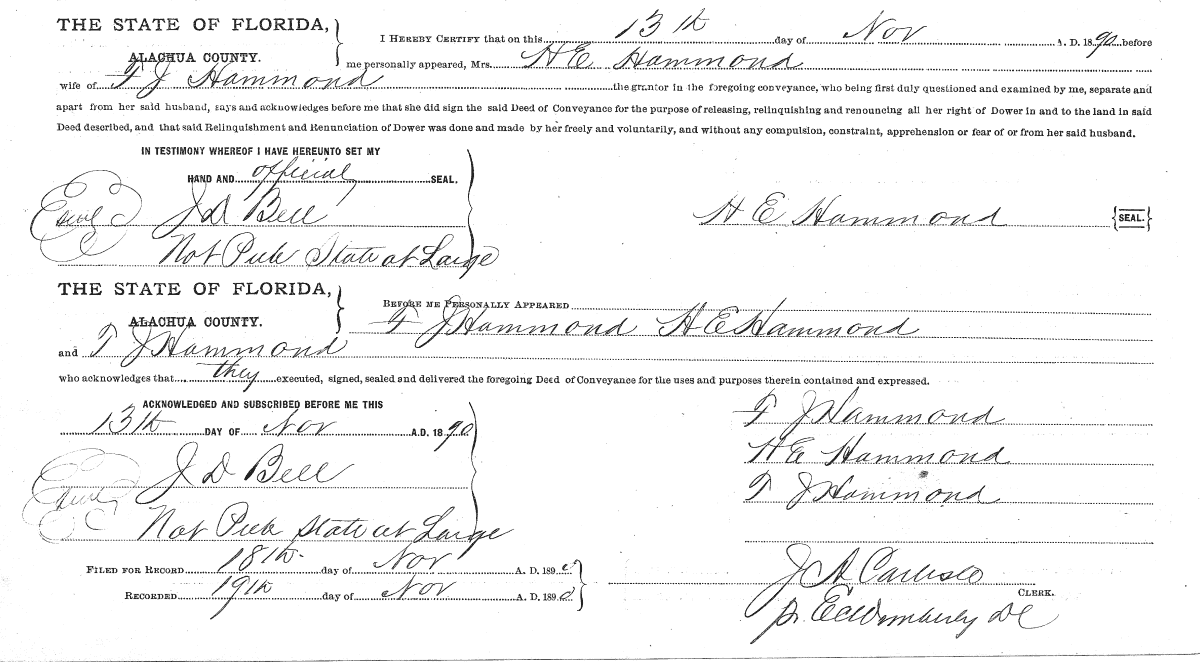 THE STATE OF FLORIDA,
ALACHUA COUNTY.
I HEREBY CERTIFY that on this 13th day of Nov A. D. 1890 before
me personally appeared, Mrs. H E Hammond
wife of F J Hammond the grantor in the foregoing conveyance, who being first duly questioned and examined by me, separate and
apart from her said husband, says and acknowledges before me that she did sign the said Deed of Conveyance for the purpose of releasing, relinquishing and renouncing all her right of Dower in and to the land in said
Deed described, and that said Relinquishment and Renunciation of Dower was done and made by her freely and voluntarily, and without any compulsion, constraint, apprehension or fear of or from her said husband.
IN TESTIMONY WHEREOF I HAVE HEREUNTO SET MY
HAND AND official SEAL.
Seal J D Bell
H E Hammond {SEAL.}
Not Pub State at Large
THE STATE OF FLORIDA,
ALACHUA COUNTY.
BEFORE ME PERSONALLY APPEARED
F J Hammond H E Hammond
and T J Hammond
who acknowledges that they executed, signed, sealed and delivered the foregoing Deed of Conveyance for the uses and purposes therein contained and expressed.
ACKNOWLEDGED AND SUBSCRIBED BEFORE ME THIS
13th DAY OF Nov A.D. 1890
F J Hammond
H E Hammond
T J Hammond
Seal J D Bell
Not Pub State at Large
FILED FOR RECORD 18th day of Nov A. D. 1890
RECORDED 19th day of Nov A. D. 1890
J A Carlisle
CLERK.
pr E C Wimberly DC